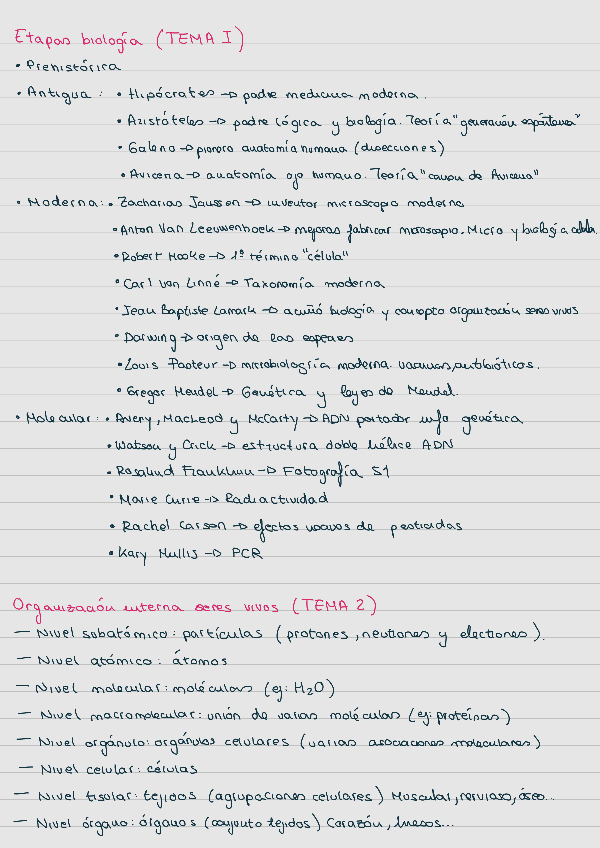 Etapas biología (TEMA I)
• Prehistórica
• Antigua: • Hipócrates → padre medicina moderna.
• Aristóteles → padre lógica y biología. Teoría "generación espontánea"
• Galeno → pionero anatomía humana (disecciones)
• Avicena → anatomía ojo humano. Teoría "canon de Avicena"
• Moderna: • Zacharias Janssen → inventor microscopio moderno
• Anton Van Leeuwenhoek → mejoras fabricar microscopio. Micro y biología celular.
• Robert Hooke → 1º término "célula"
• Carl von Linné → Taxonomía moderna
• Jean Baptiste Lamark → acuñó biología y concepto organización seres vivos
• Darwing → origen de las especies
• Louis Pasteur → microbiología moderna. vacunas, antibióticos.
• Gregor Mendel → Genética y leyes de Mendel.
• Molecular: • Avery, MacLeod y McCarty → ADN portador info genética
• Watson y Crick → estructura doble hélice ADN
• Rosalind Franklinn → Fotografía 51
• Marie Curie → Radiactividad
• Rachel Carson → efectos nocivos de pesticidas
• Kary Mullis → PCR
Organización interna seres vivos (TEMA 2)
— Nivel subatómico: partículas (protones, neutrones y electrones).
— Nivel atómico: átomos
— Nivel molecular: moléculas (ej: H₂O)
— Nivel macromolecular: unión de varias moléculas (ej: proteínas)
— Nivel orgánulo: orgánulos celulares (varias asociaciones moleculares)
— Nivel celular: células
— Nivel tisular: tejidos (agrupaciones celulares) Muscular, nervioso, óseo...
— Nivel órgano: órganos (conjunto tejidos) Corazón, huesos...